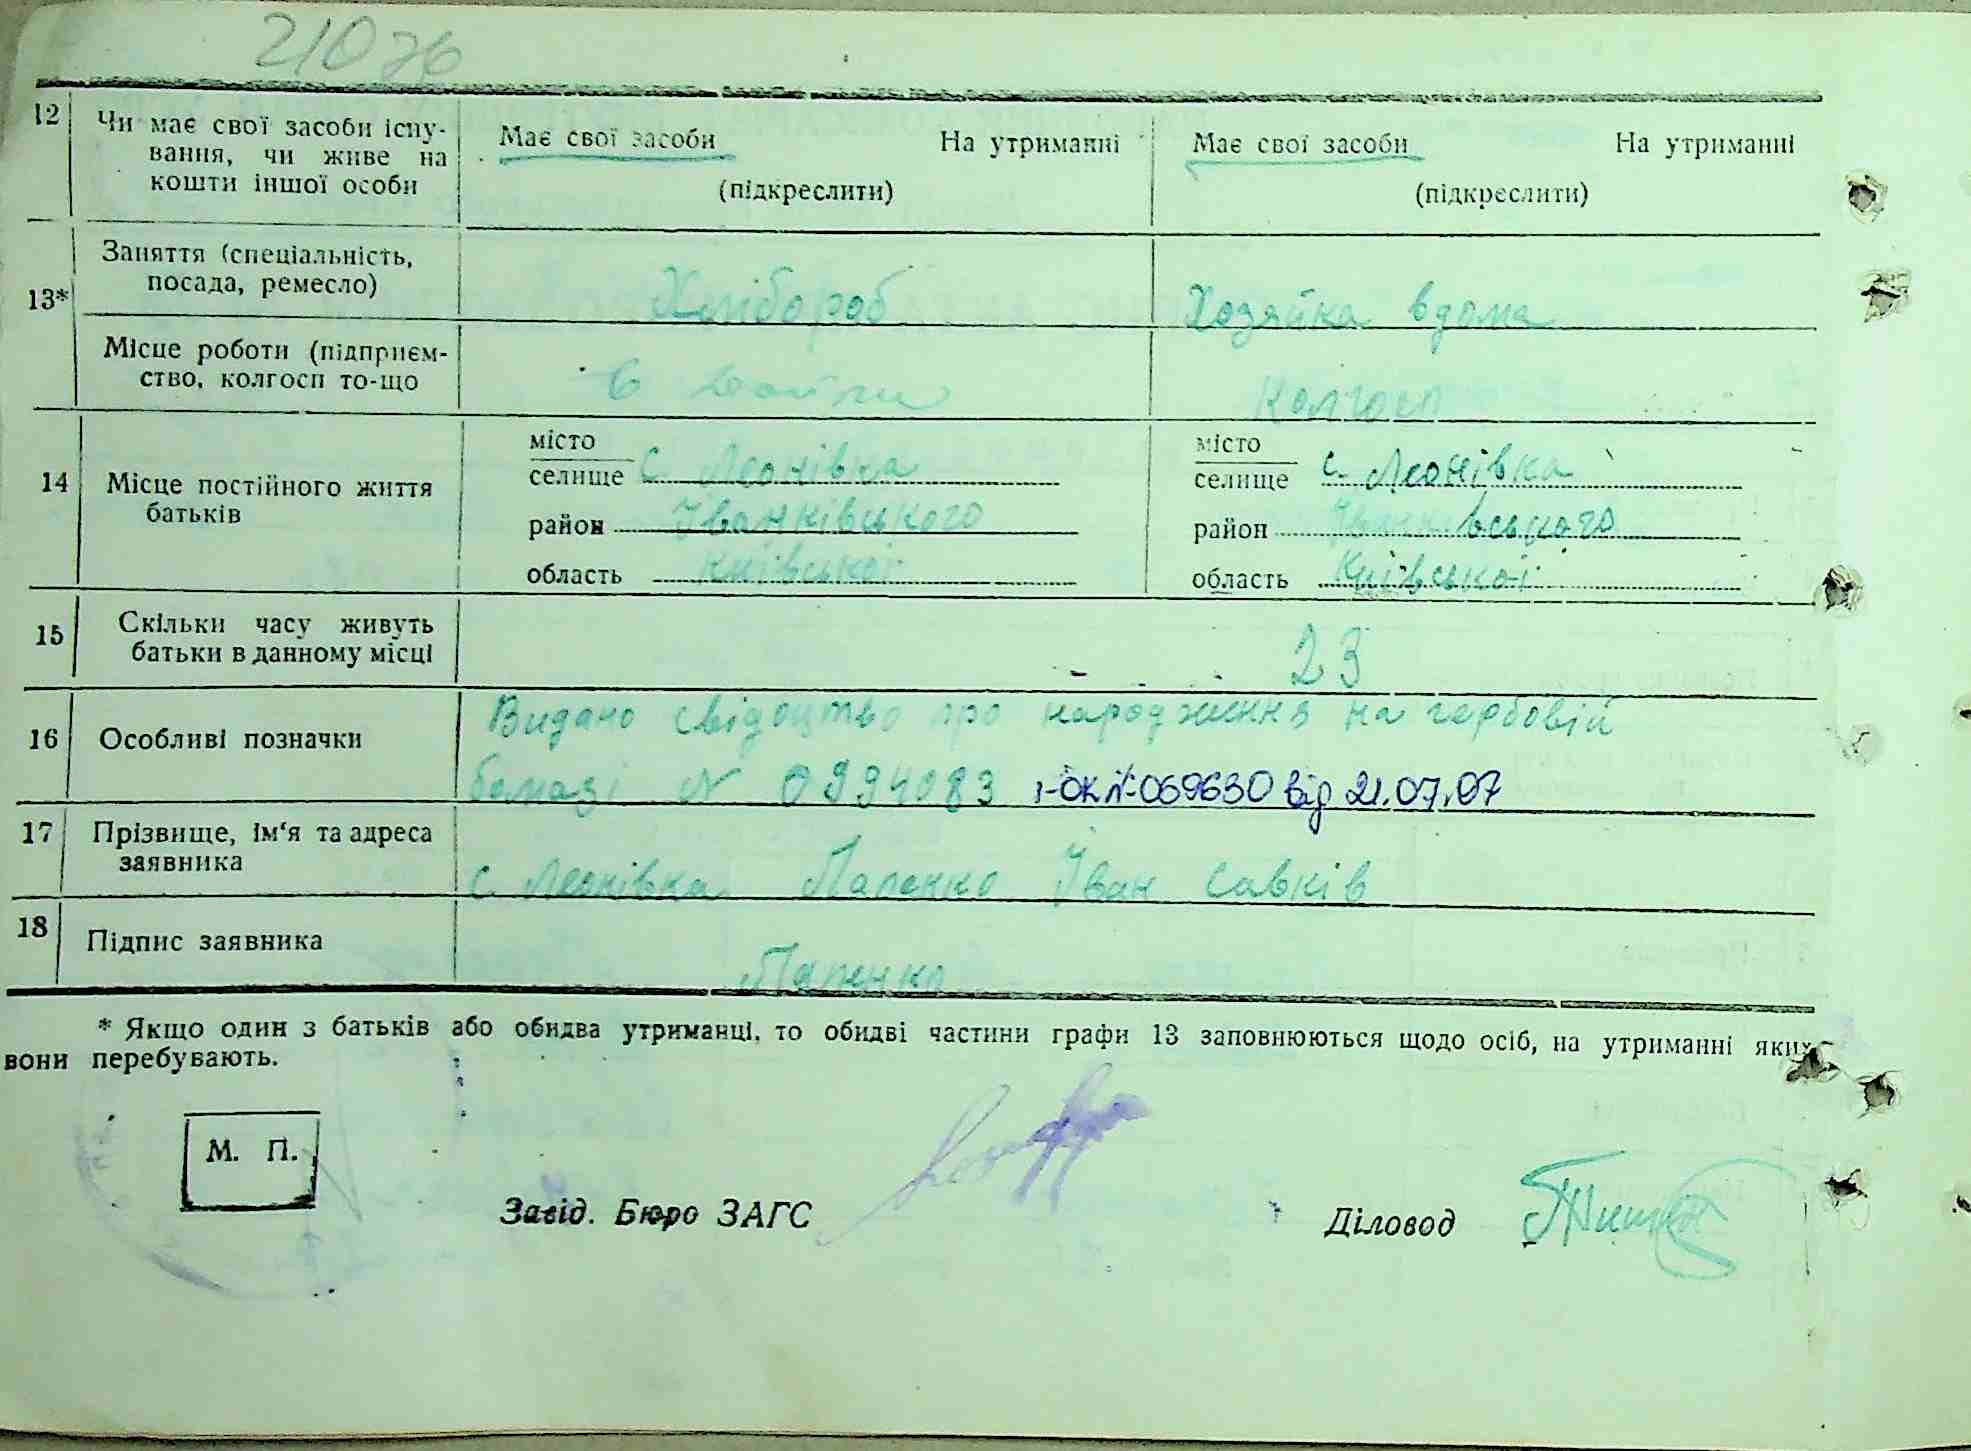 210
12
Чи має свої засоби існу-
вання, чи живе на
кошти іншої особи
Має свої засоби На утриманні
(підкреслити)
Має свої засоби На утриманні
(підкреслити)
13*
Заняття (спеціальність,
посада, ремесло)
Хлібороб
Хозяйка вдома
Місце роботи (підприєм-
ство, колгосп то-що
Колгосп
14
Місце постійного життя
батьків
місто
селище с. Леонівка
район Іванківського
область Київської
місто
селище с. Леонівка
район Іванківського
область Київської
15
Скільки часу живуть
батьки в данному місці
23
16
Особливі позначки
Видано свідоцтво про народження на гербовій
бомазі N 0994083 І-ОК № 069630 від 21.07.07
17
Прізвище, ім'я та адреса
заявника
с. Леонівка Папенко Іван Савків
18
Підпис заявника
Папенко
* Якщо один з батьків або обидва утриманці, то обидві частини графи 13 заповнюються щодо осіб, на утриманні яких
вони перебувають.
М. П.
Завід. Бюро ЗАГС
Діловод